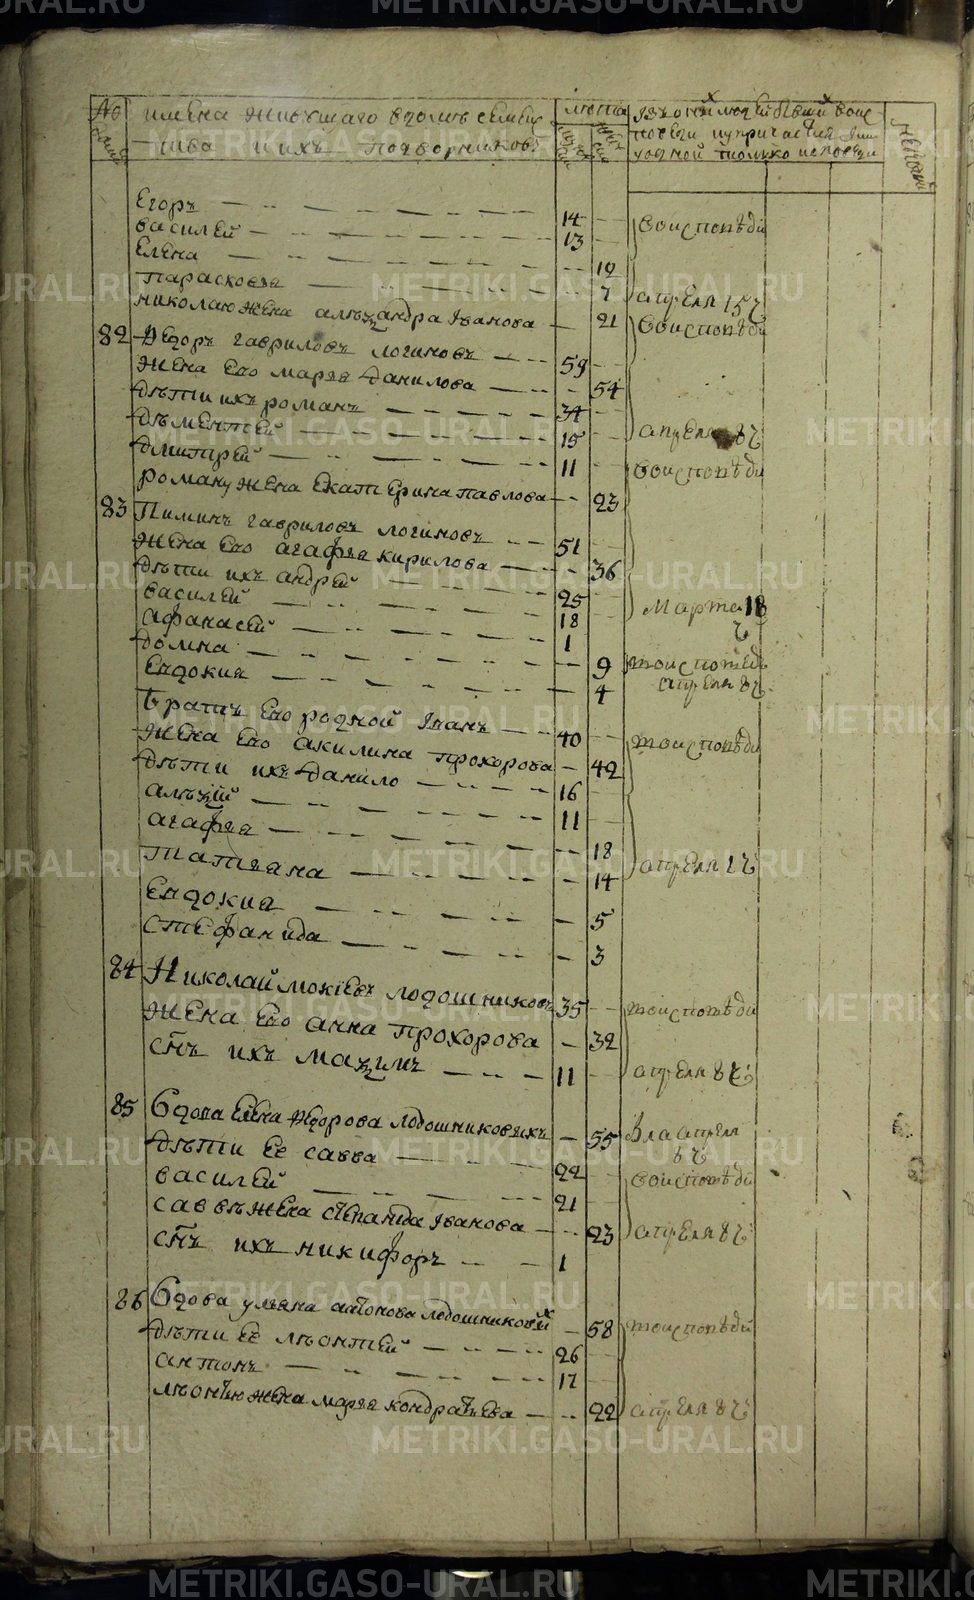 № имена живущаго в доме семейс лета
тива и ихъ подворниковъ
Егоръ 14 воисповѣди
василей 13
Елена 19
параскова 7 апреля 15 ч
николаю жена алеѯандра Іванова 21 воисповѣди
82 Ѳедоръ гавриловъ логиновъ 59
жена ево маръя данилова 54
дѣти ихъ романъ 34
дѣментей 15 апреля 8 ч
дмитрей 11 воисповѣди
роману жена Екатерина павлова 23
83 Пиминъ гавриловъ логиновъ 51
жена ево агафья кирилова 36
дѣти ихъ андрей 25
василей 18 Марта 18
афанасей 1 ч
домна 9 тоисповѣд
Евдокия 4 апреля 8 ч
братъ ево родной Іванъ 40 тоисповѣди
жена ево акилина прохорова 42
дѣти ихъ данило 16
алеѯій 11
агафья 18
татьяна 14 апреля 1 ч
Евдокия 5
стефанида 3
84 Николай мокіевъ лодошниковъ 35 тоисповѣди
жена ево анна прохорова 32
снъ ихъ маѯимъ 11 апреля 8 ч
85 Вдова Елена Ѳедорова лодошниковыхъ 55 апреля
дѣти ее савва 22 8 ч
василей 21 воисповѣди
саввѣ жена степанида Іванова 23 апреля 8 ч
снъ ихъ никифоръ 1
86 Вдова ульяна антонова лодошниковых 58 тоисповѣди
дѣти ее леонтей 26
антонъ 17
леонтью жена маръя кондратьева 22 апреля 8 ч
METRIKI.GASO-URAL.RU